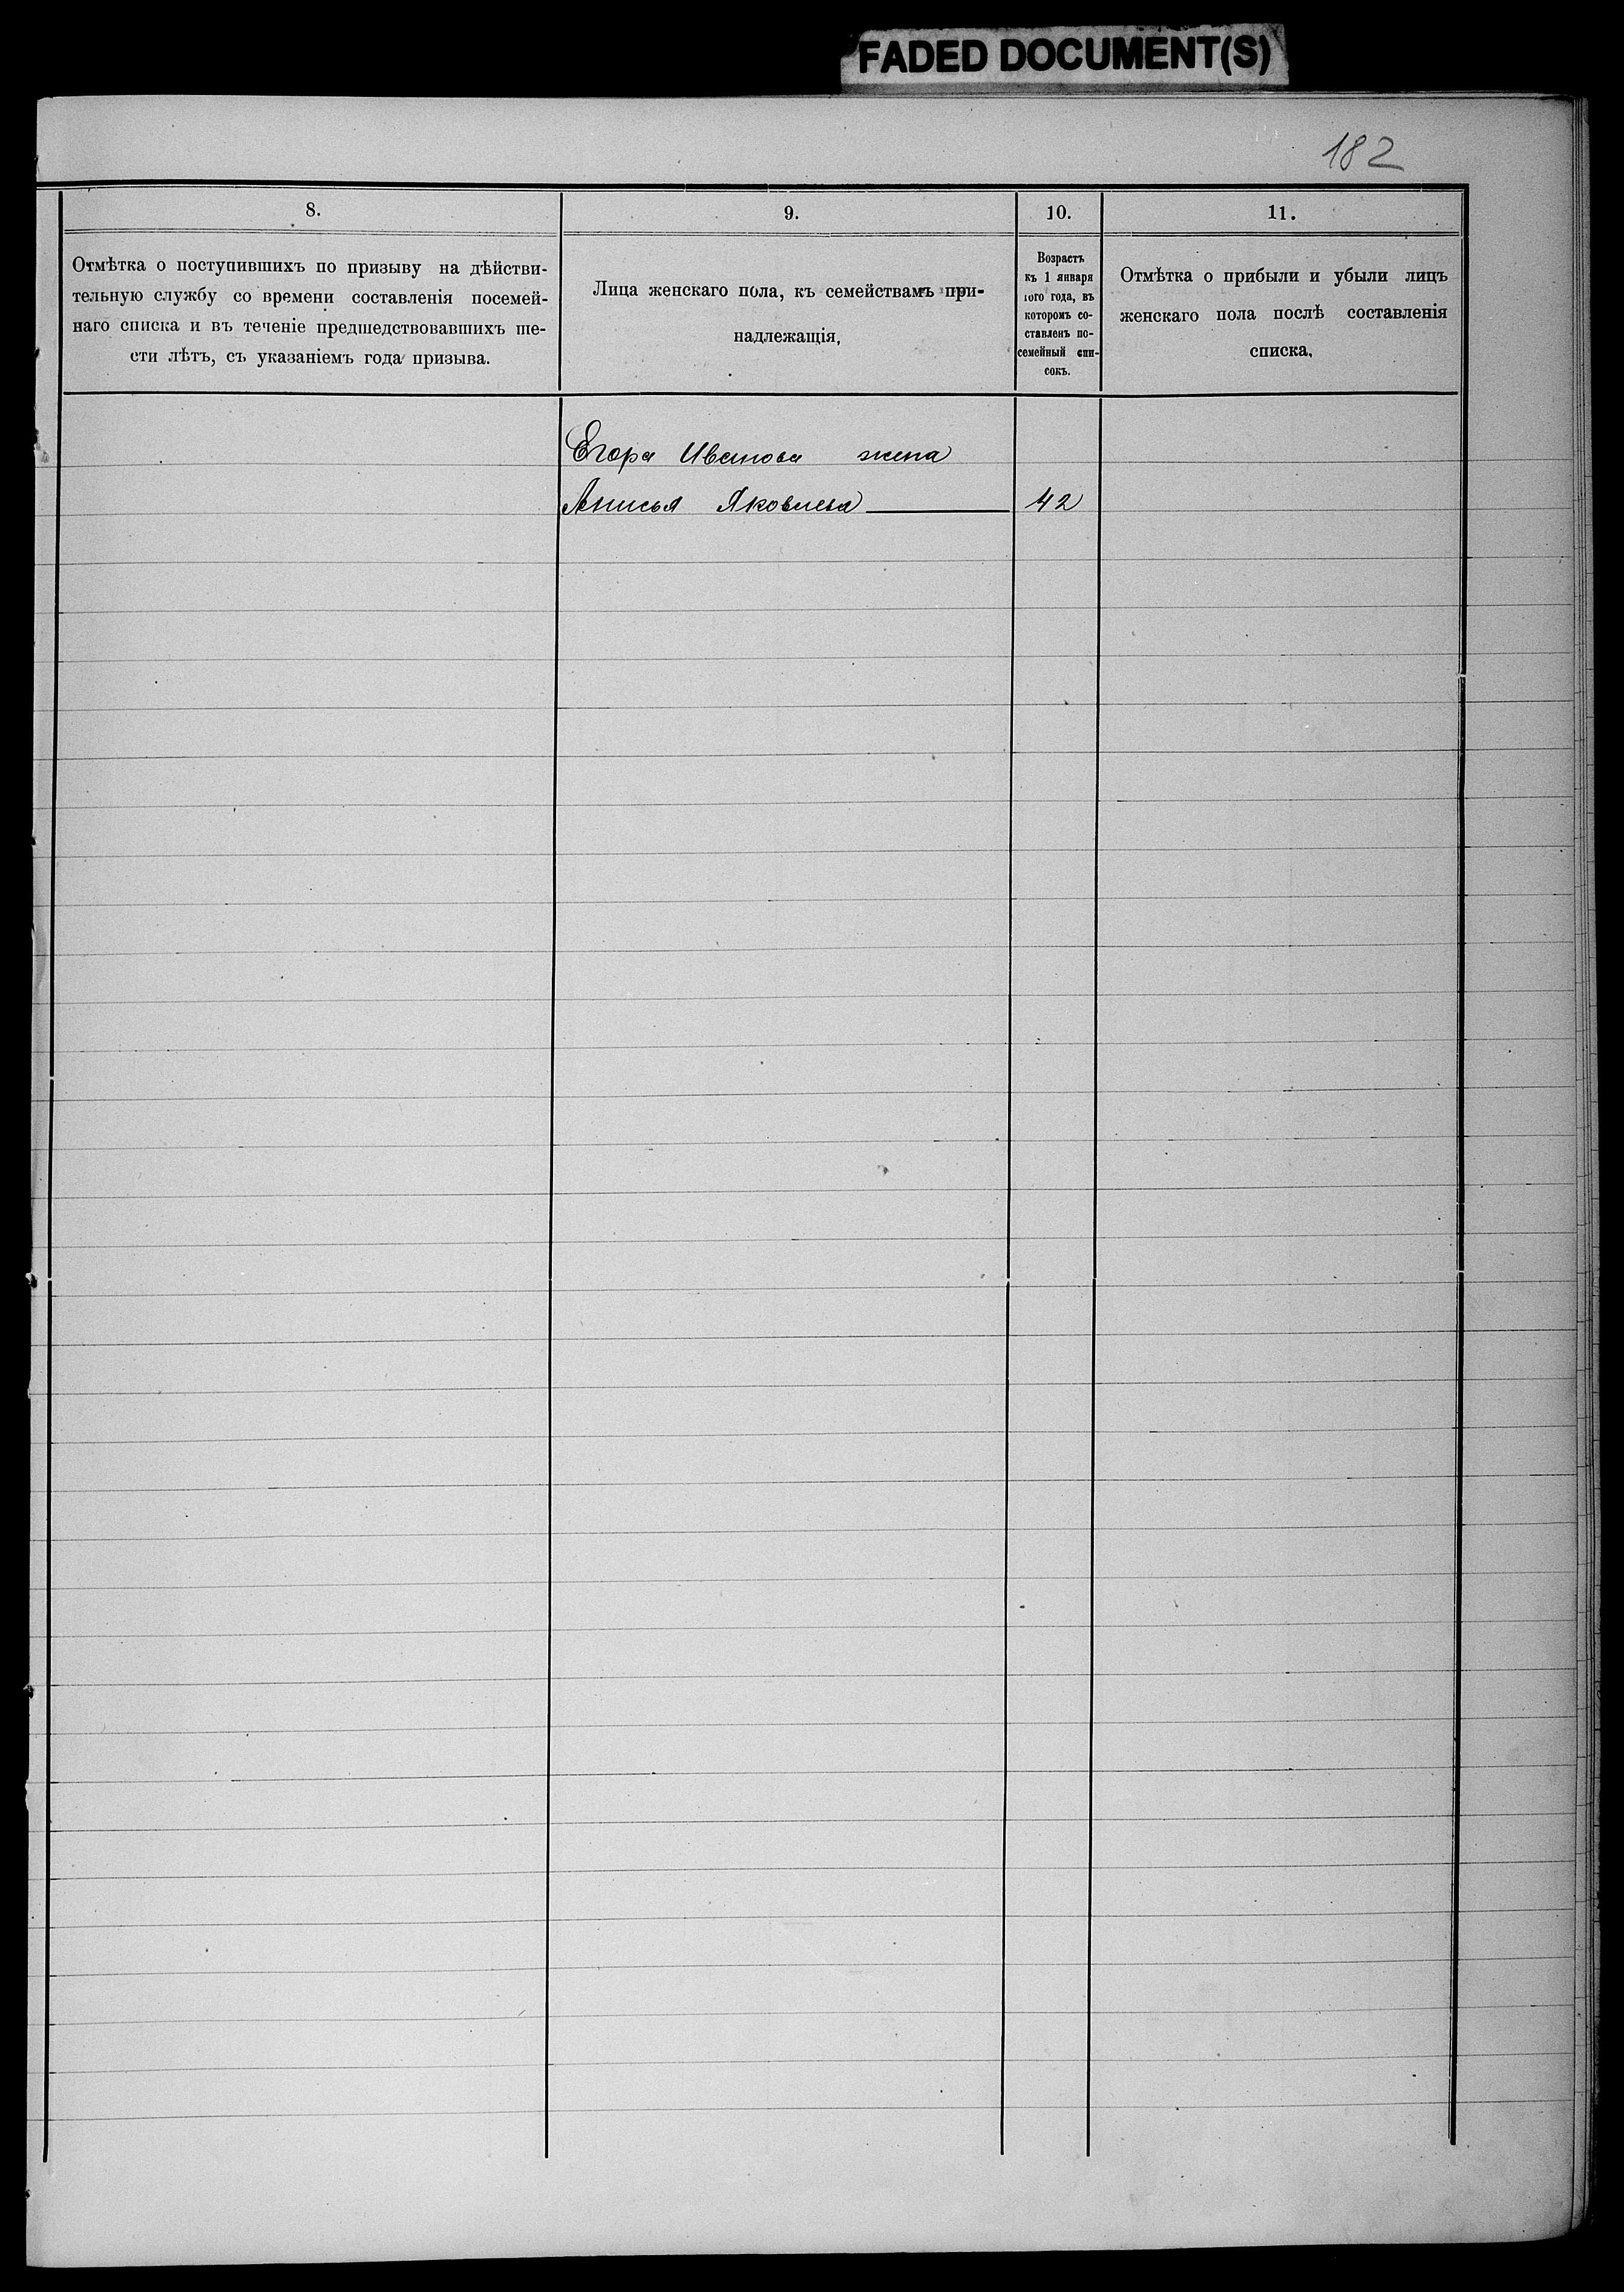 FADED DOCUMENT(S)
182
8.
Отмѣтка о поступившихъ по призыву на дѣйстви-
тельную службу со времени составленія посемей-
наго списка и въ теченіе предшедствовавшихъ ше-
сти лѣтъ, съ указаніемъ года призыва.
9.
Лица женскаго пола, къ семействамъ при-
надлежащія,
10.
Возрастъ
къ 1 января
того года, въ
которомъ со-
ставленъ по-
семейный спи-
сокъ.
11.
Отмѣтка о прибыли и убыли лицъ
женскаго пола послѣ составленія
списка,
Егора Иванова жена
Анисья Яковлева 42